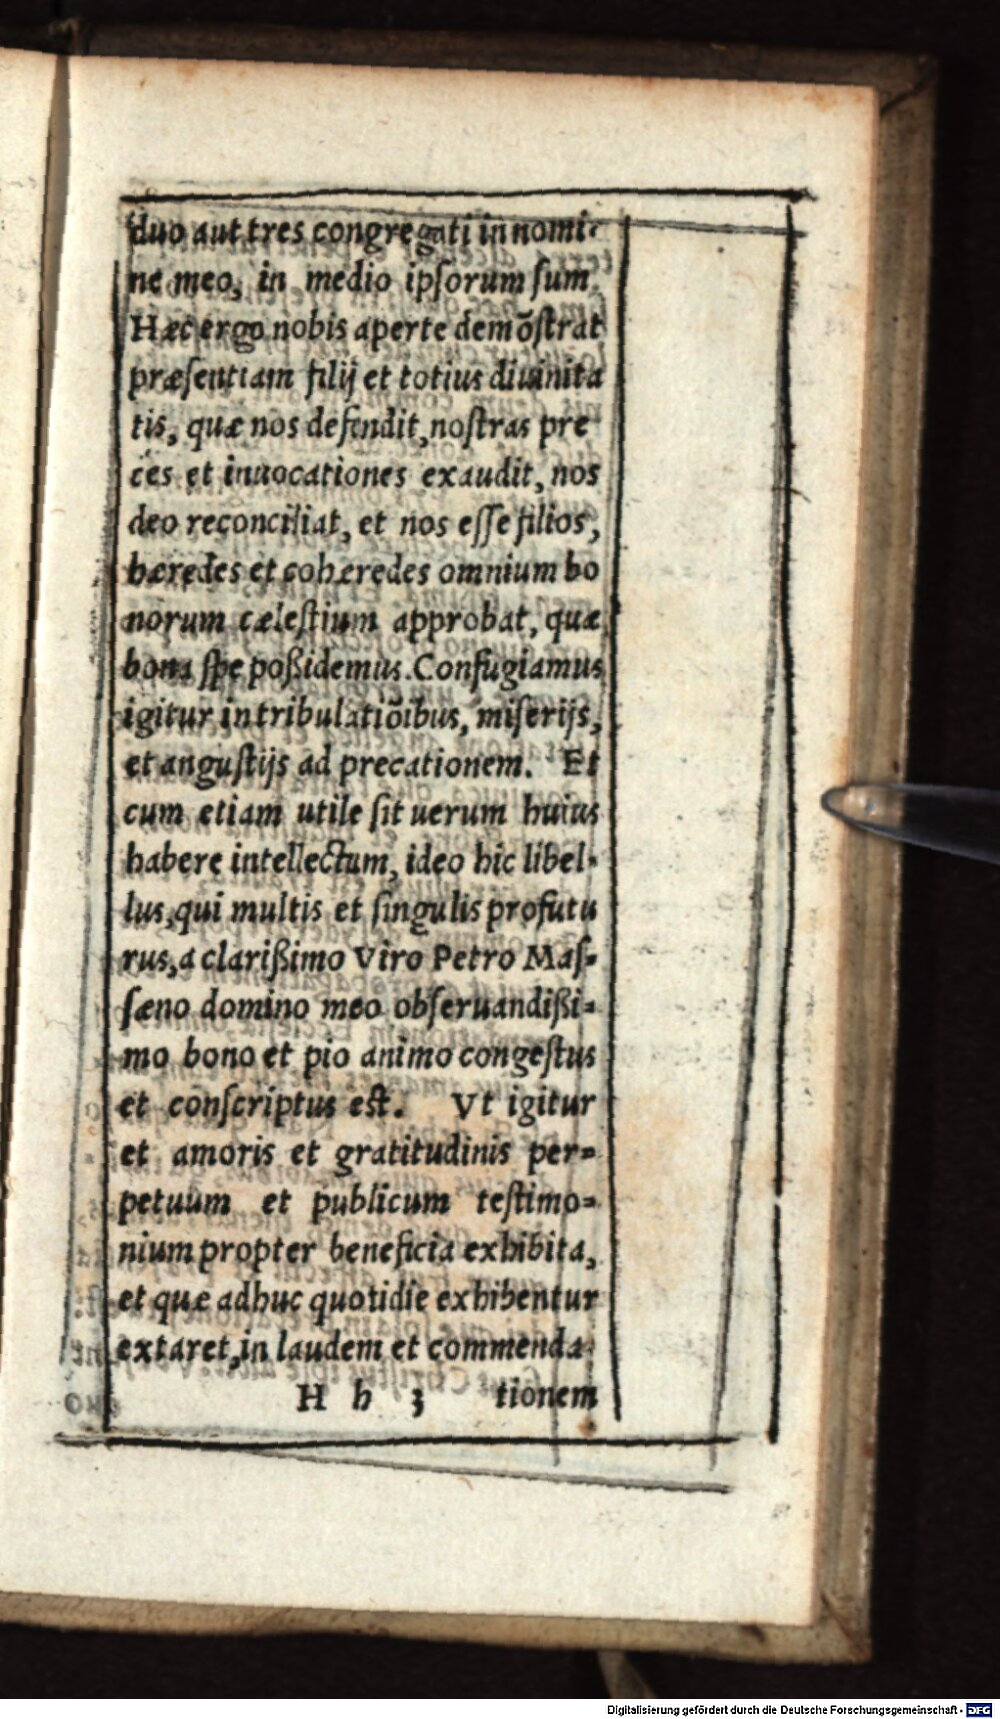 duo aut tres congregati in nomi-
ne meo, in medio ipsorum sum
Hæc ergo nobis aperte demõstrat
præsentiam filij et totius diuinita
tis, quæ nos defendit, nostras pre
ces et inuocationes exaudit, nos
deo reconciliat, et nos esse filios,
hæredes et cohæredes omnium bo
norum cælestium approbat, quæ
bona spe poßidemus. Confugiamus
igitur in tribulatiõibus, miserijs,
et angustijs ad precationem. Et
cum etiam utile sit uerum huius
habere intellectum, ideo hic libel-
lus, qui multis et singulis profutu
rus, a clarißimo Viro Petro Mas-
sæno domino meo obseruandißi-
mo bono et pio animo congestus
et conscriptus est. Vt igitur
et amoris et gratitudinis per-
petuum et publicum testimo-
nium propter beneficia exhibita,
et quæ adhuc quotidie exhibentur
extaret, in laudem et commenda-
H h 3 tionem
Digitalisierung gefördert durch die Deutsche Forschungsgemeinschaft - DFG